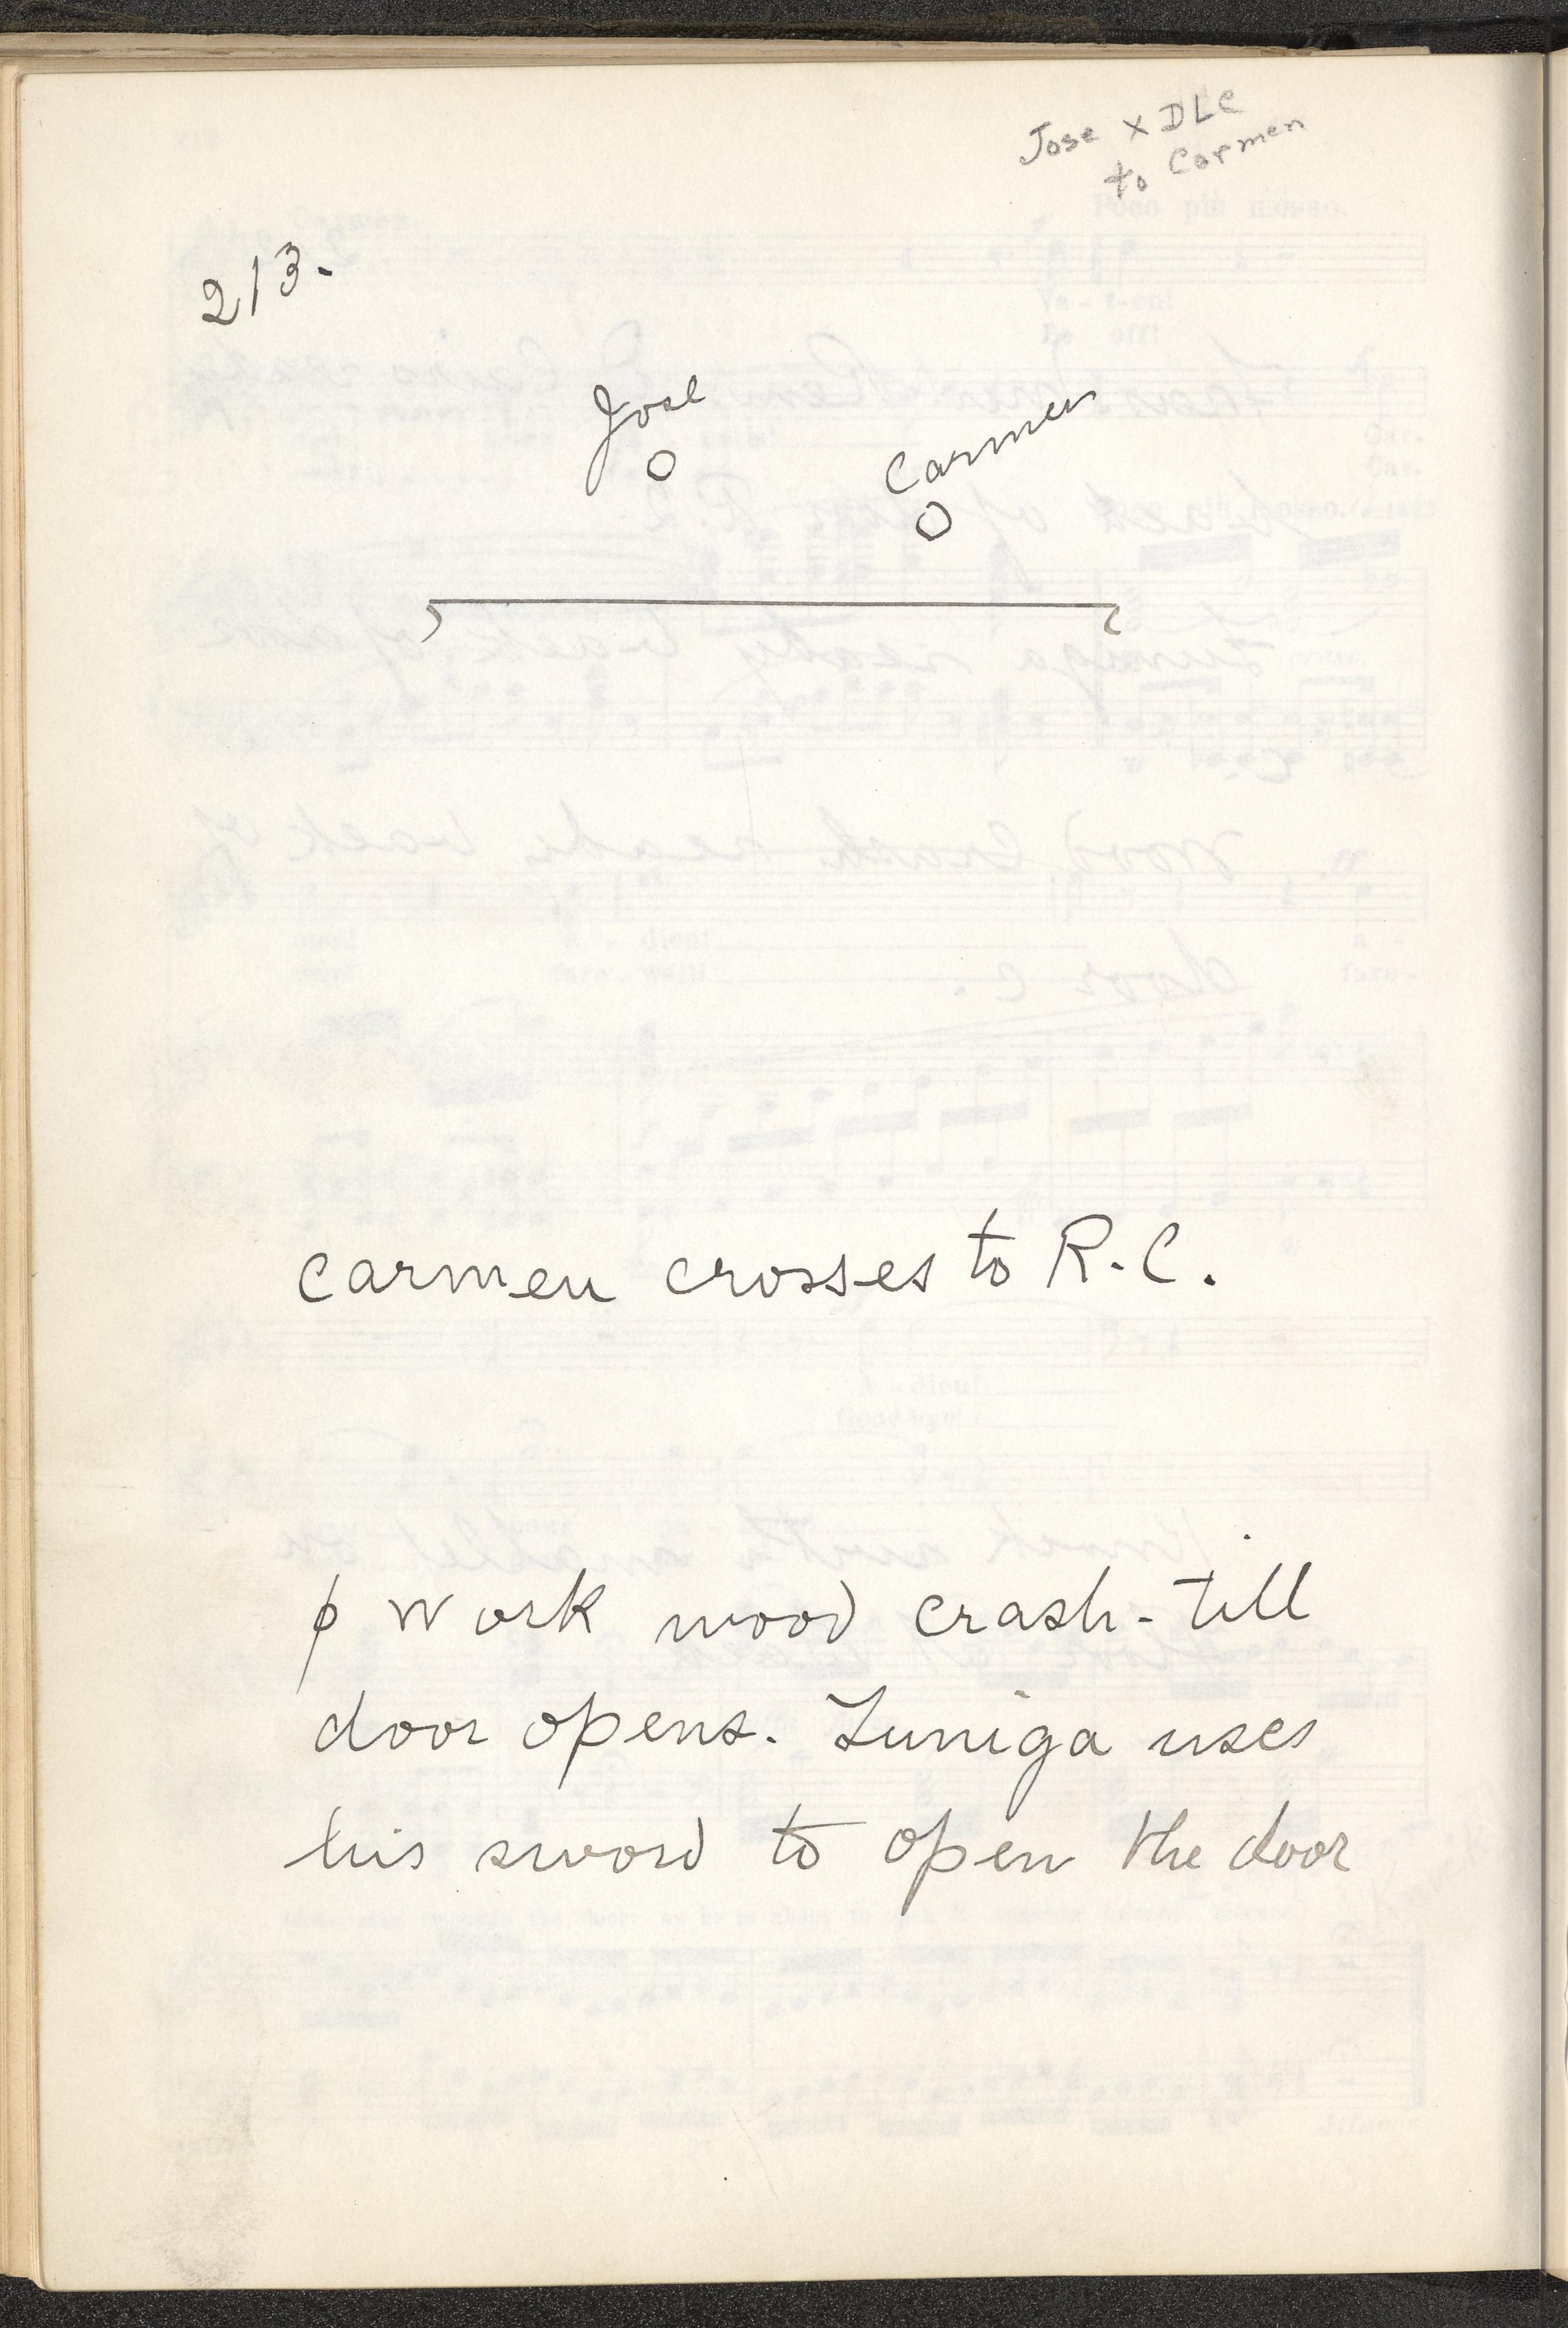 Jose X DLC
to Carmen
213.
Jose
Carmen
Carmen crosses to R.C.
ϕ Work wood crash - till
door opens. Zuniga uses
his sword to open the door